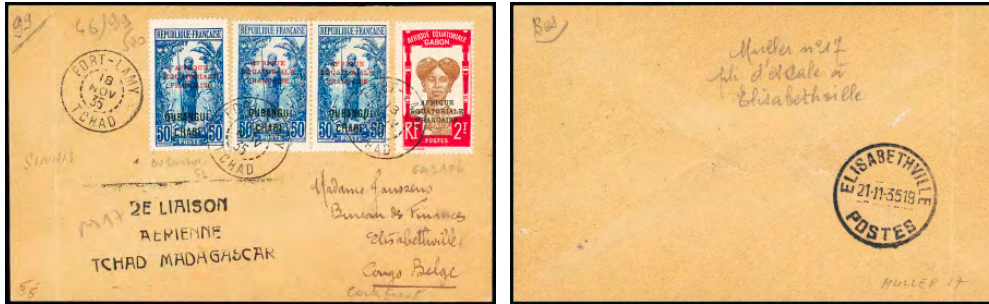 99
46/99
500
FORT-LAMY
18
NOV
35
TCHAD
RÉPUBLIQUE-FRANÇAISE
AFRIQUE
EQUATORIALE
FRANÇAISE
OUBANGUI
CHARI
50 50
POSTE
RÉPUBLIQUE-FRANÇAISE
AFRIQUE
EQUATORIALE
FRANÇAISE
OUBANGUI
CHARI
50 50
POSTE
RÉPUBLIQUE-FRANÇAISE
AFRIQUE
EQUATORIALE
FRANÇAISE
OUBANGUI
CHARI
50 50
POSTE
AFRIQUE EQUATORIALE
GABON
AFRIQUE
EQUATORIALE
FRANÇAISE
RF 2F
POSTES
35
TCHAD
TCHAD
GABON
M17
2E LIAISON
AERIENNE
TCHAD MADAGASCAR
Madame Janssens
Bureau des Finances
Elisabethville
Congo Belge
55
Muller n°17
pli d'escale à
Elisabethville
ELISABETHVILLE
21-11-3519
POSTES
MULLER 17